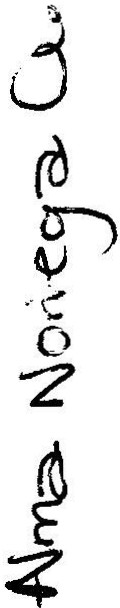 Alma Noriega Q.